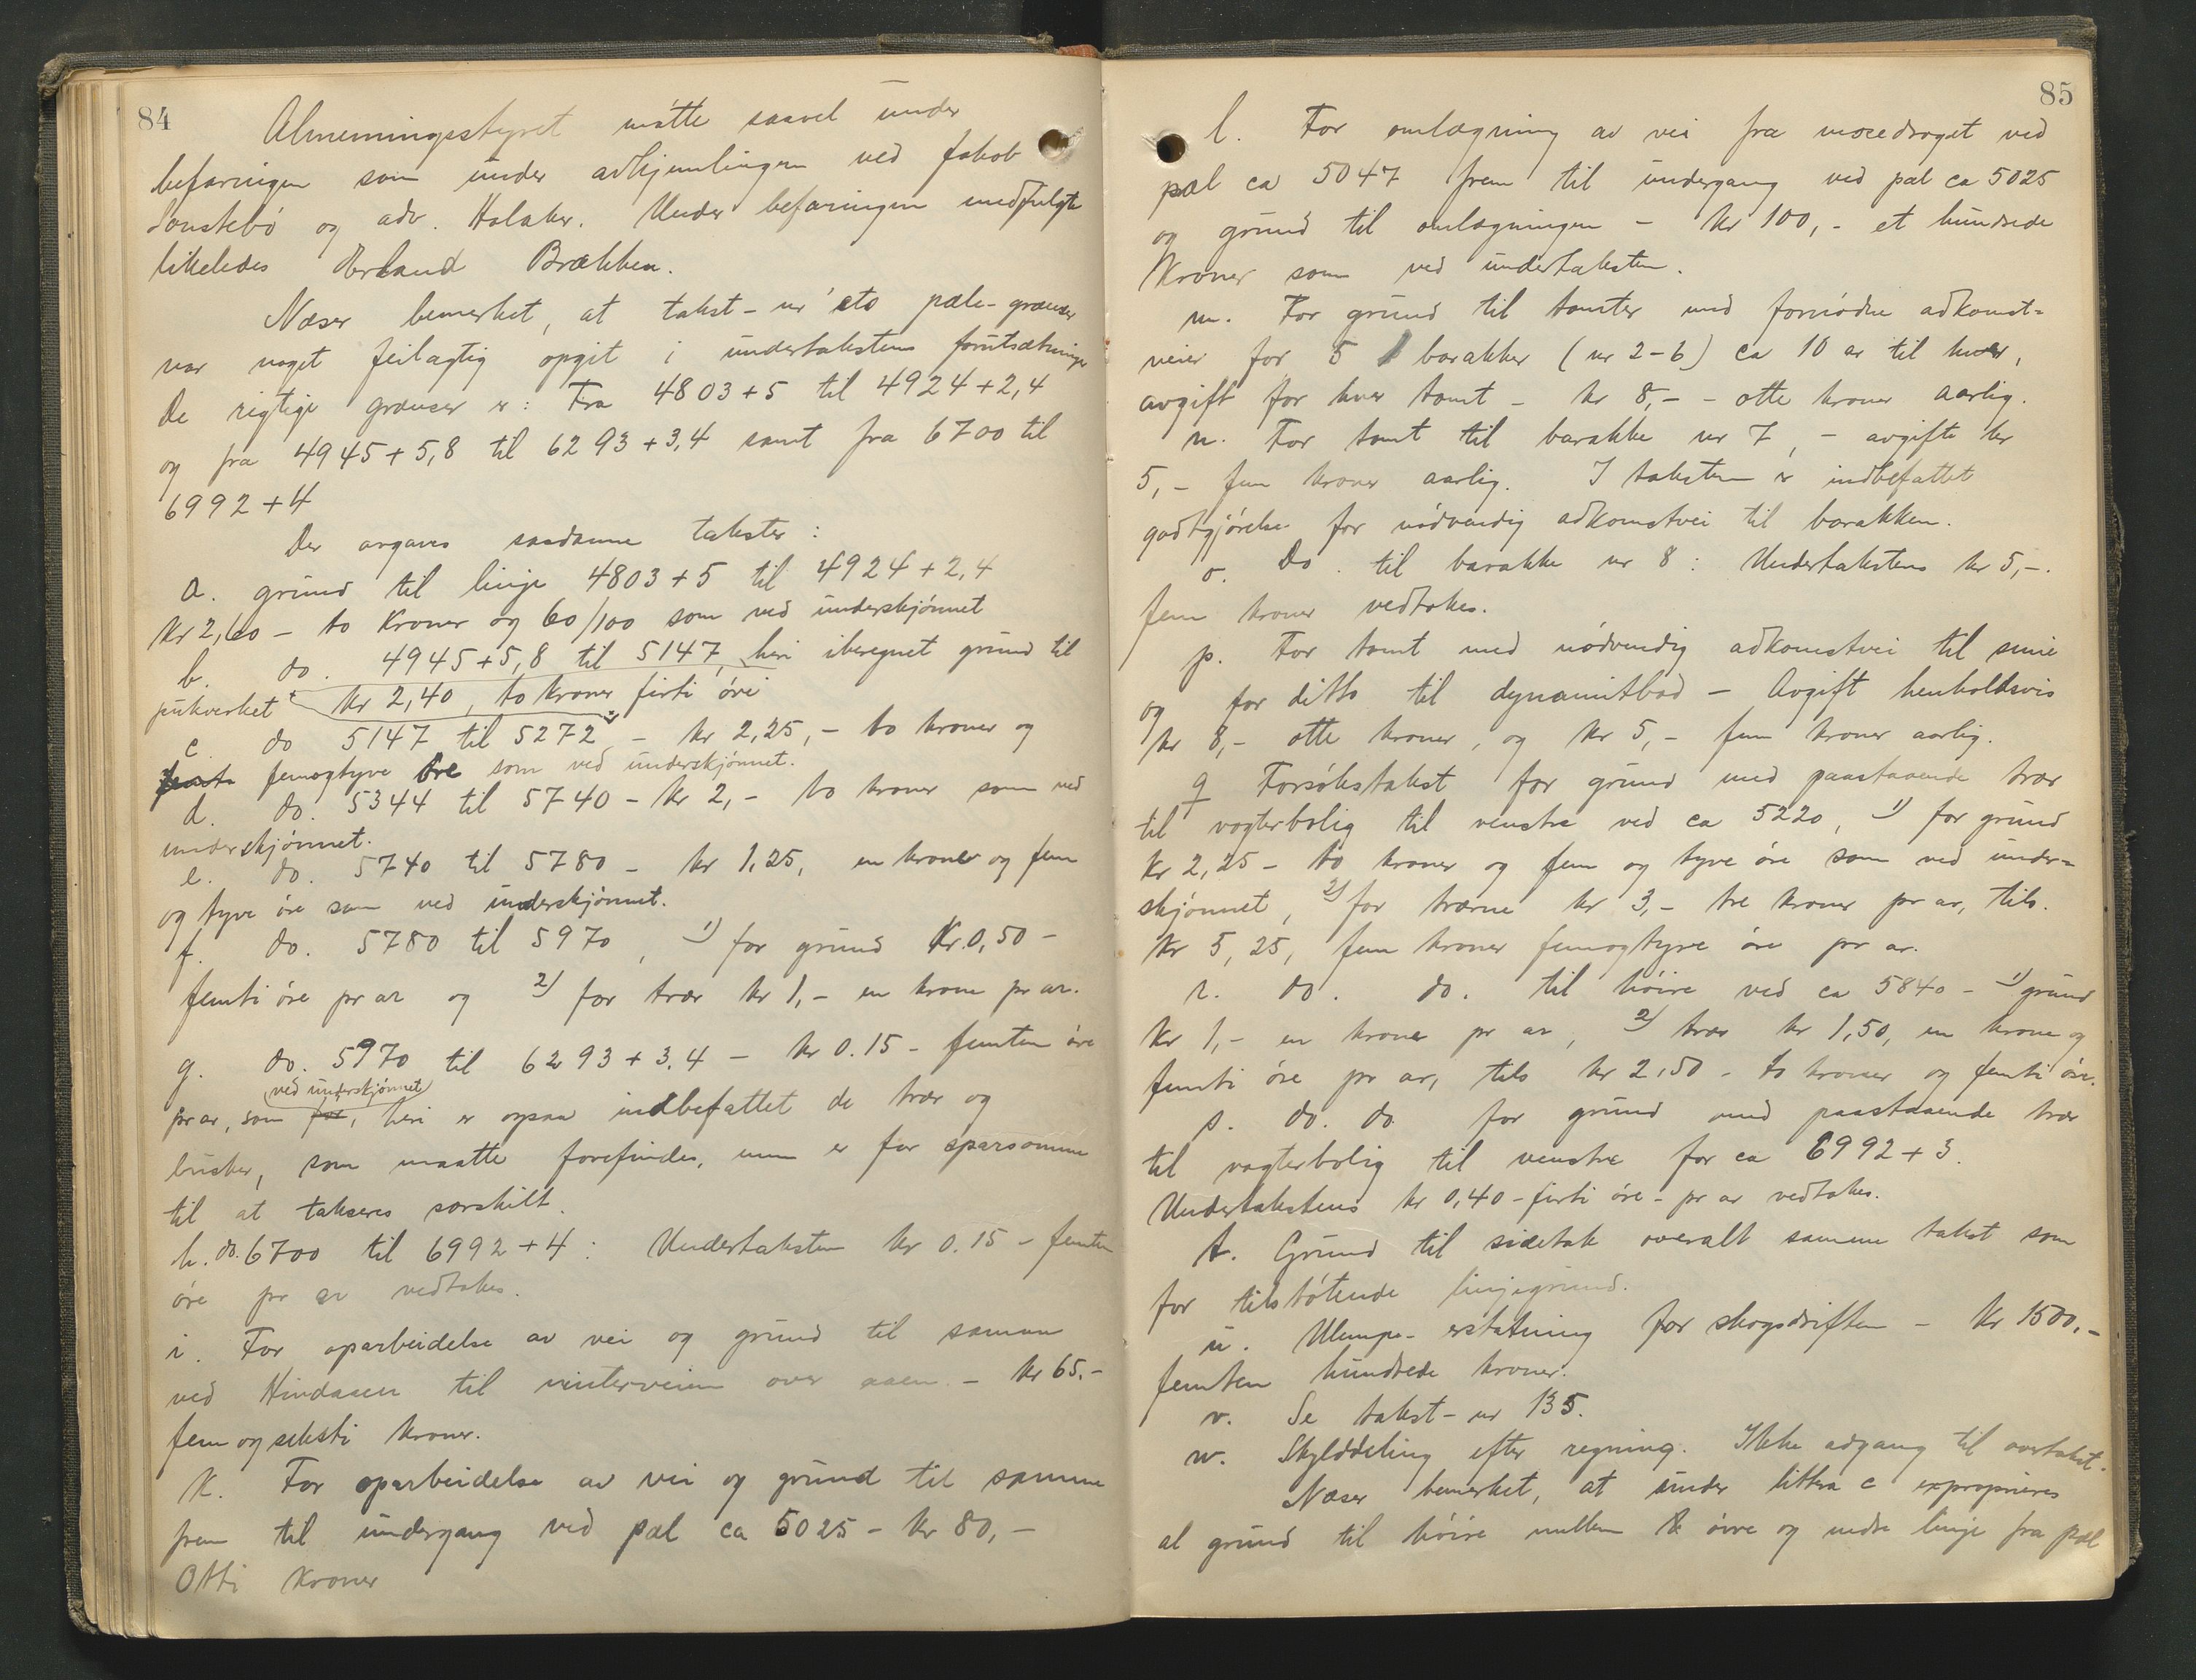 84
Almenningsstyret mötte saavel under
befaringen som under avhjemlingen ved Jakob
Sönstebö og adv. Holaker. Under befaringen medfulgte
likeledes Erland Brækken.
Næser bemerket, at takst-nr'ets pæle-grænser
var noget feilagtig opgit i undertakstens forutsætninger
De rigtige grænser er: Fra 4803+5 til 4924+2,4
og fra 4945+5,8 til 6293+3,4 samt fra 6700 til
6992+4
Der avgaves saadanne takster:
a. grund til linje 4803+5 til 4924+2,4
kr 2,60 - to kroner og 60/100 som ved underskjönnet
b. do. 4945+5,8 til 5147, heri iberegnet grund til
pukverket kr 2,40, to kroner firti öre
c do 5147 til 5272 - kr 2,25,- to kroner og
femogtyve öre som ved underskjönnet.
d. do. 5344 til 5740 - kr 2,- to kroner som ved
underskjönnet.
e. do. 5740 til 5780 - kr 1,25, en krone og fem
og tyve öre som ved underskjönnet.
f. do. 5780 til 5970, 1) for grund kr. 0,50 -
femti öre pr ar og 2) for trær kr 1,- en krone pr ar.
g. do. 5970 til 6293+3,4 - kr 0.15 - femten öre
ved underskjönnet
pr ar, som for, heri er ogsaa indbefattet de trær og
busker, som maatte forefindes, men er for sparsomme
til at takseres særskilt.
h. do. 6700 til 6992+4: Undertaksten kr 0.15 - femten
öre pr ar vedtakes.
i. For oparbeidelse av vei og grund til samme
ved Hindaaen til vinterveien over aaen - kr 65.-
fem og seksti kroner.
k. For oparbeidelse av vei og grund til samme
frem til undergang ved pæl ca 5025 - kr 80,-
Otti kroner
85
l. For omlægning av vei fra mosedraget ved
pæl ca 5047 frem til undergang ved pæl ca 5025
og grund til omlægningen - kr 100,- et hundrede
kroner som ved undertaksten.
m. For grund til tomter med fornödne adkomst-
veier for 5 barakker (nr 2-6) ca 10 ar til hver,
avgift for hver tomt - kr 8,- - otte kroner aarlig.
n. For tomt til barakke nr 7, - avgift kr
5,- fem kroner aarlig. I taksten er indbefattet
godtgjörelse for nödvendig adkomstvei til barakken.
o. Do. til barakke nr 8: Undertakstens kr 5,-.
fem kroner vedtakes.
p. For tomt med nödvendig adkomstvei til smie
og for ditto til dynamitbod - Avgift henholdsvis
kr 8,- otte kroner, og kr 5,- fem kroner aarlig.
q Forsökstakst for grund med paastaaende trær
til vogterbolig til venstre ved ca 5220, 1) for grund
kr 2,25 - to kroner og fem og tyve öre som ved under-
skjönnet, 2) for trærne kr 3,- tre kroner pr ar, tils.
kr 5,25, fem kroner femogtyve öre pr ar.
r. do. do. til höire ved ca 5840 - 1) grund
kr 1,- en krone pr ar, 2) trær kr 1,50, en krone og
femti öre pr ar, tils kr 2,50 - to kroner og femti öre.
s. do. do. for grund med paastaaende trær
til vogterbolig til venstre for ca 6992+3.
Undertakstens kr 0,40 - firti öre - pr ar vedtakes.
t. Grund til sidetak overalt samme takst som
for tilstötende linjegrund.
u. Ulempe-erstatning for skogsdriften - kr 1500,-
femten hundrede kroner.
v. Se takst-nr 135.
w. Skylddeling efter regning. Ikke adgang til overtakst.
Næser bemerket, at under littra c exproprieres
al grund til höire mellem övre og nedre linje fra pæl